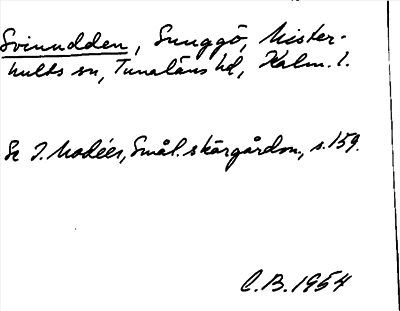 Svinudden, Sunggö, Mister-
hults sn, Tunaläns hd, Kalm. l.
Se I. Modéer, Smål. skärgårdsn., s. 159.
C.B. 1954